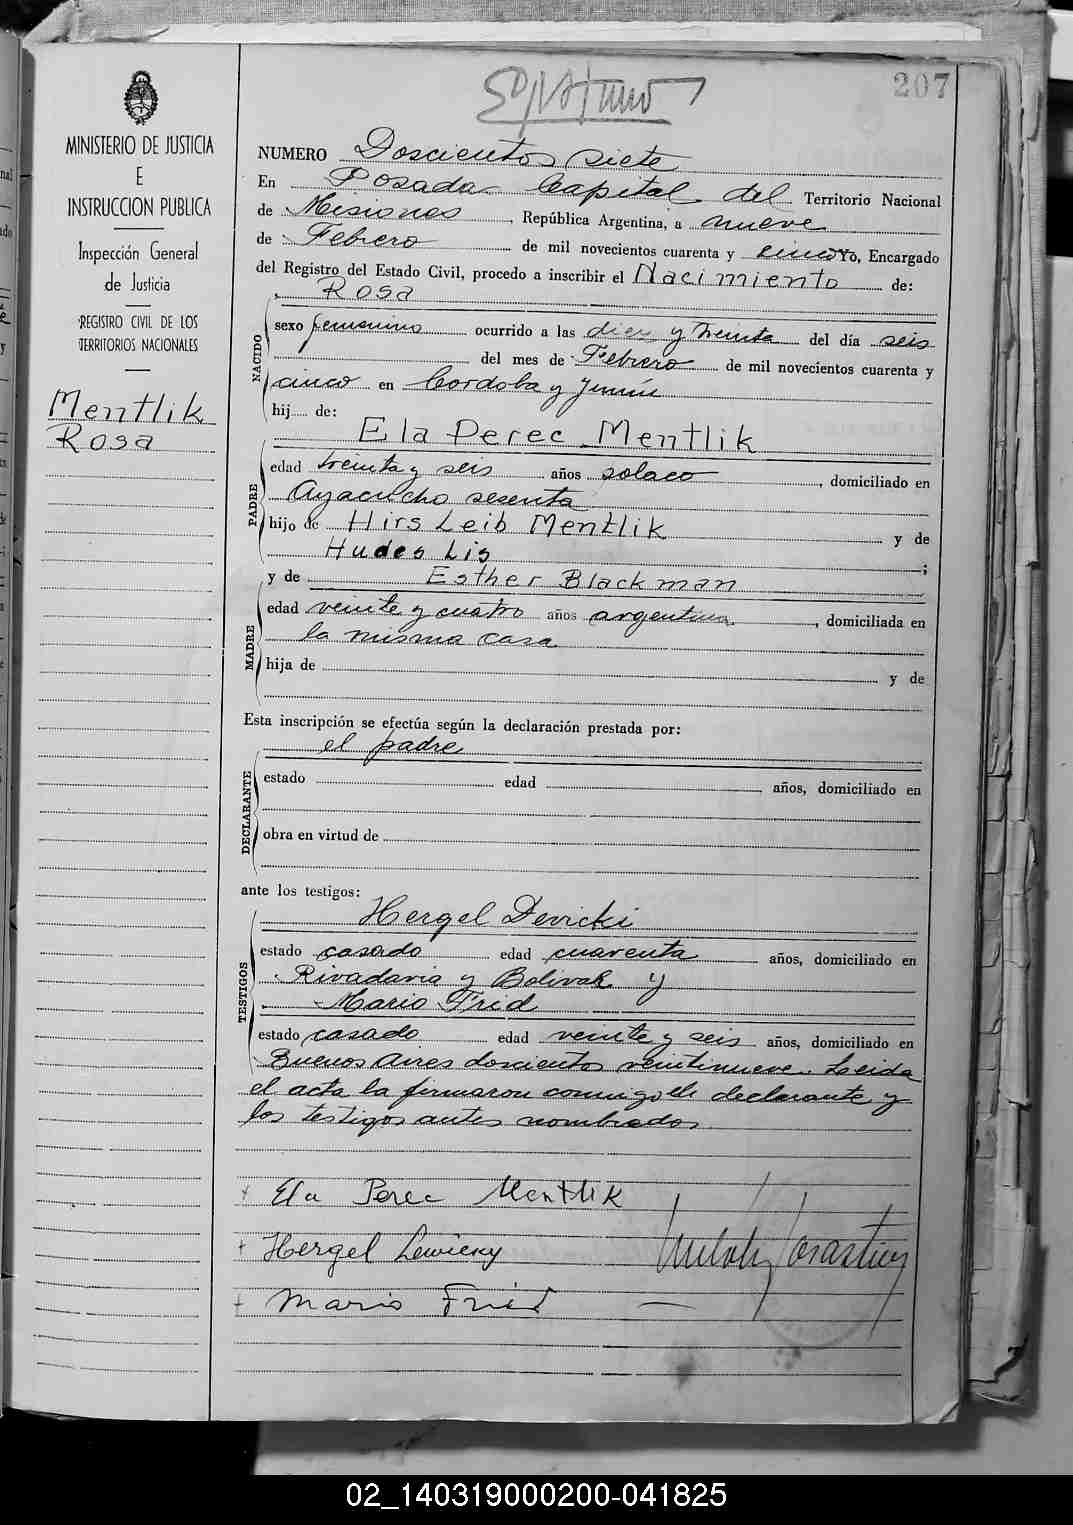 207
MINISTERIO DE JUSTICIA
E
INSTRUCCION PUBLICA
Inspección General
de Justicia
REGISTRO CIVIL DE LOS
TERRITORIOS NACIONALES
Mentlik
Rosa
NUMERO Doscientos siete
En Posadas Capital del Territorio Nacional
de Misiones, República Argentina, a nueve
de Febrero de mil novecientos cuarenta y cinco Yo, Encargado
del Registro del Estado Civil, procedo a inscribir el Nacimiento de:
Rosa
NACIDO
sexo femenino ocurrido a las diez y treinta del día seis
del mes de Febrero de mil novecientos cuarenta y
cinco en Cordoba y Junín
hij de:
Ela Perec Mentlik
PADRE
edad treinta y seis años polaco, domiciliado en
Ayacucho sesenta
hijo de Hirs Leib Mentlik y de
Hudes Lis ;
y de Esther Blackman
MADRE
edad veinte y cuatro años argentina, domiciliada en
la misma casa
hija de y de
Esta inscripción se efectúa según la declaración prestada por:
el padre
DECLARANTE
estado edad años, domiciliado en
obra en virtud de
ante los testigos:
Hergel Devicki
TESTIGOS
estado casado edad cuarenta años, domiciliado en
Rivadavia y Bolivar y
Mario Frid
estado casado edad veinte y seis años, domiciliado en
Buenos Aires doscientos veintinueve. Leida
el acta la firmaron conmigo el declarante y
los testigos antes nombrados.
Ela Perec Mentlik
Hergel Lewicky
Mario Frid
02_140319000200-041825